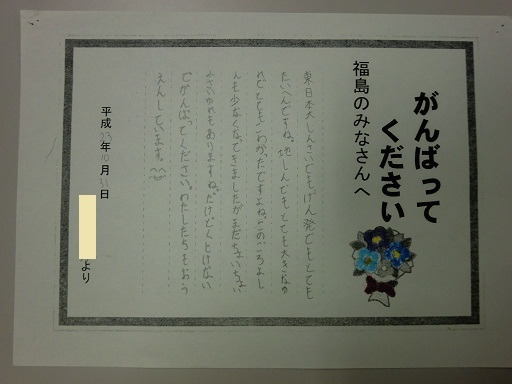 がんばって
ください
福島のみなさんへ
東日本大しんさいでもげん発でもとても
たいへんですね。地しんでもとても大きなゆ
れでとてもこわかったですよね。このごろよし
んも少なくなってきましたがまだちょいちょい
もありますね。だけど
でがんばってください。わたしたちもおう
えんしています。
平成23年10月31日
より